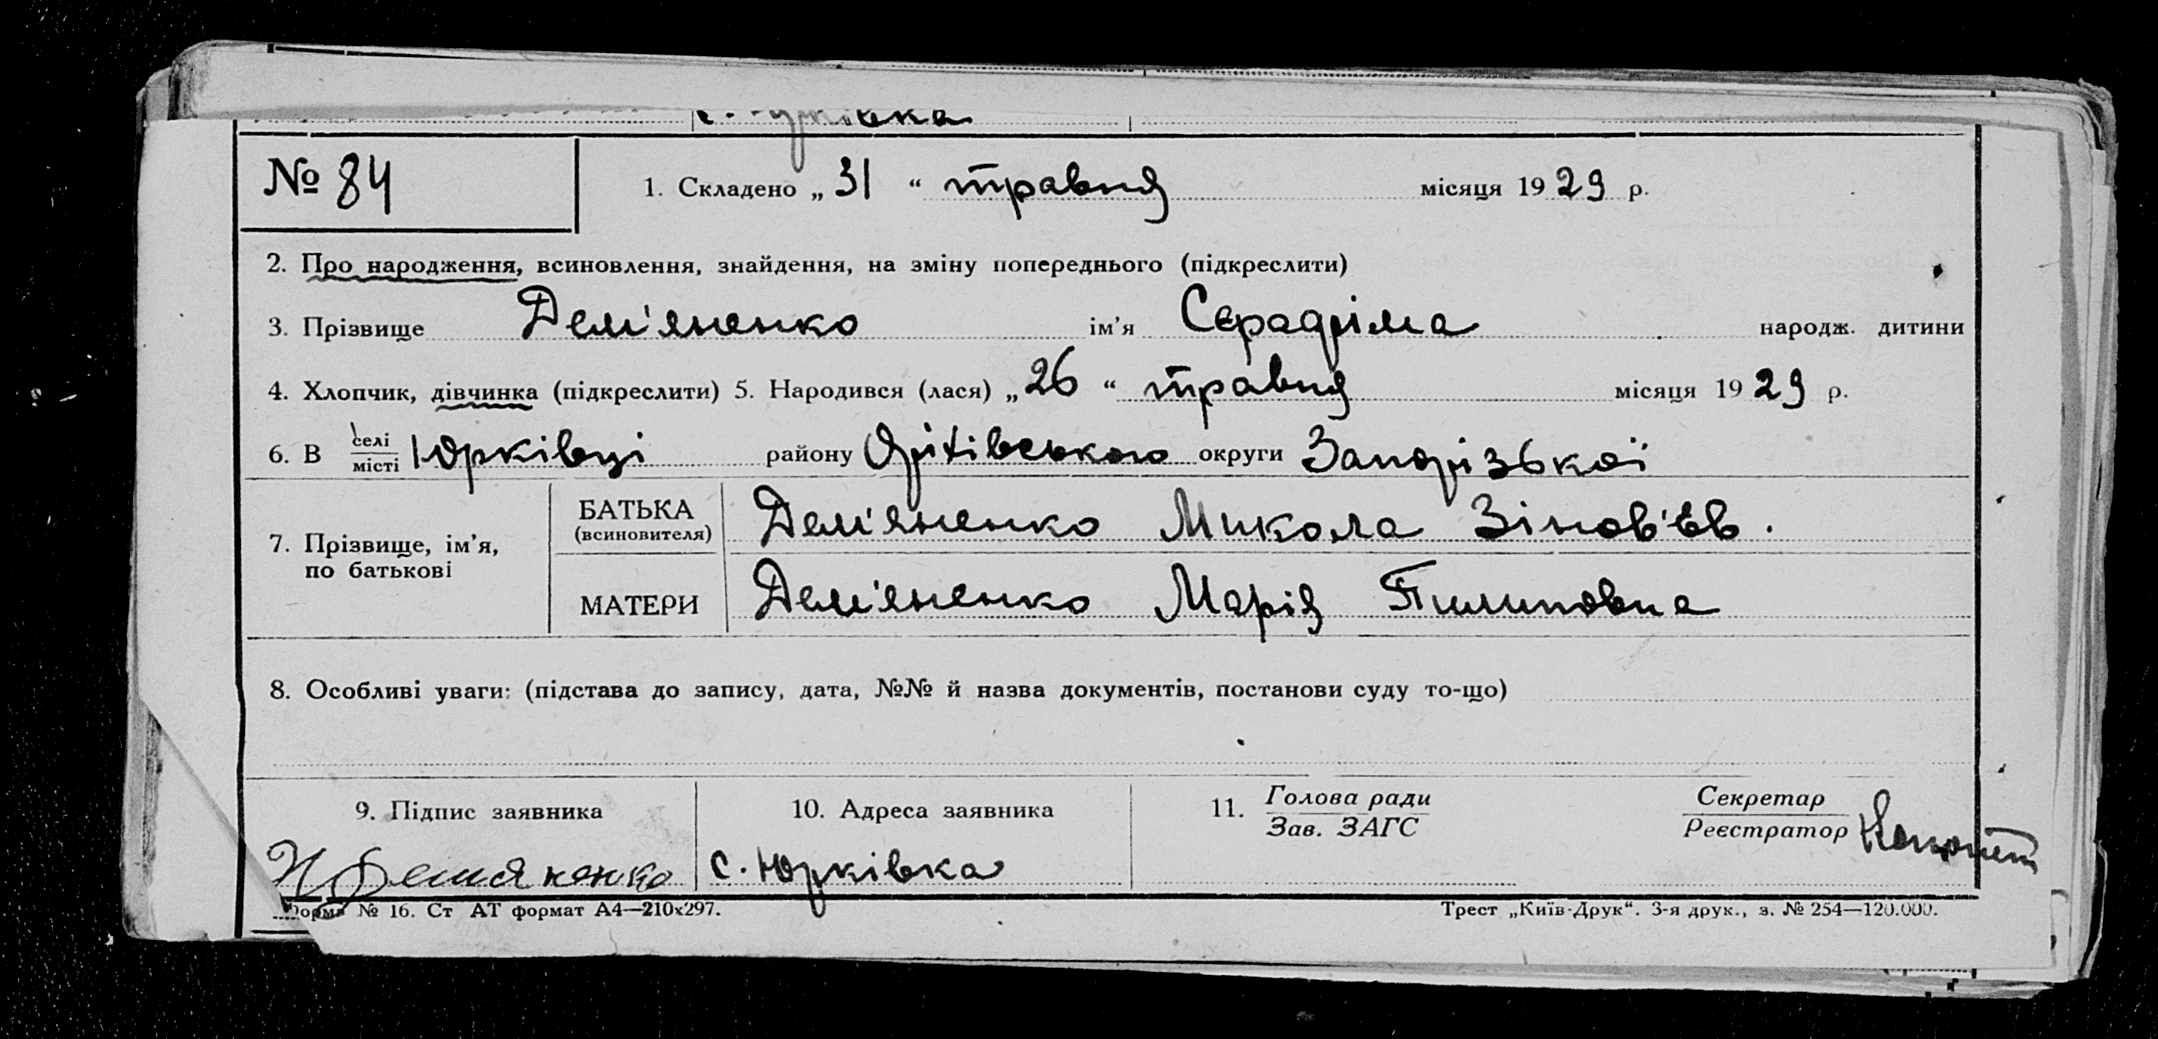 с. Юрківка
№ 84
1. Складено „ 31 “ травня місяця 1929 р.
2. Про народження, всиновлення, знайдення, на зміну попереднього (підкреслити)
3. Прізвище Дем'яненко ім'я Сєрафіма народж. дитини
4. Хлопчик, дівчинка (підкреслити) 5. Народився (лася) „ 26 “ травня місяця 1929 р.
6. В селі/місті Юрківці району Оріхівського округи Запорізької
7. Прізвище, ім'я, по батькові
БАТЬКА (всиновителя) Дем'яненко Микола Зінов'єв.
МАТЕРИ Дем'яненко Марія Пилиповна
8. Особливі уваги: (підстава до запису, дата, №№ й назва документів, постанови суду то-що)
9. Підпис заявника
10. Адреса заявника
11. Голова ради
Зав. ЗАГС
Секретар
Реєстратор
Демяненко
с. Юрківка
Форма № 16. Ст АТ формат А4—210х297.
Трест „Київ-Друк“. 3-я друк., з. № 254—120.000.